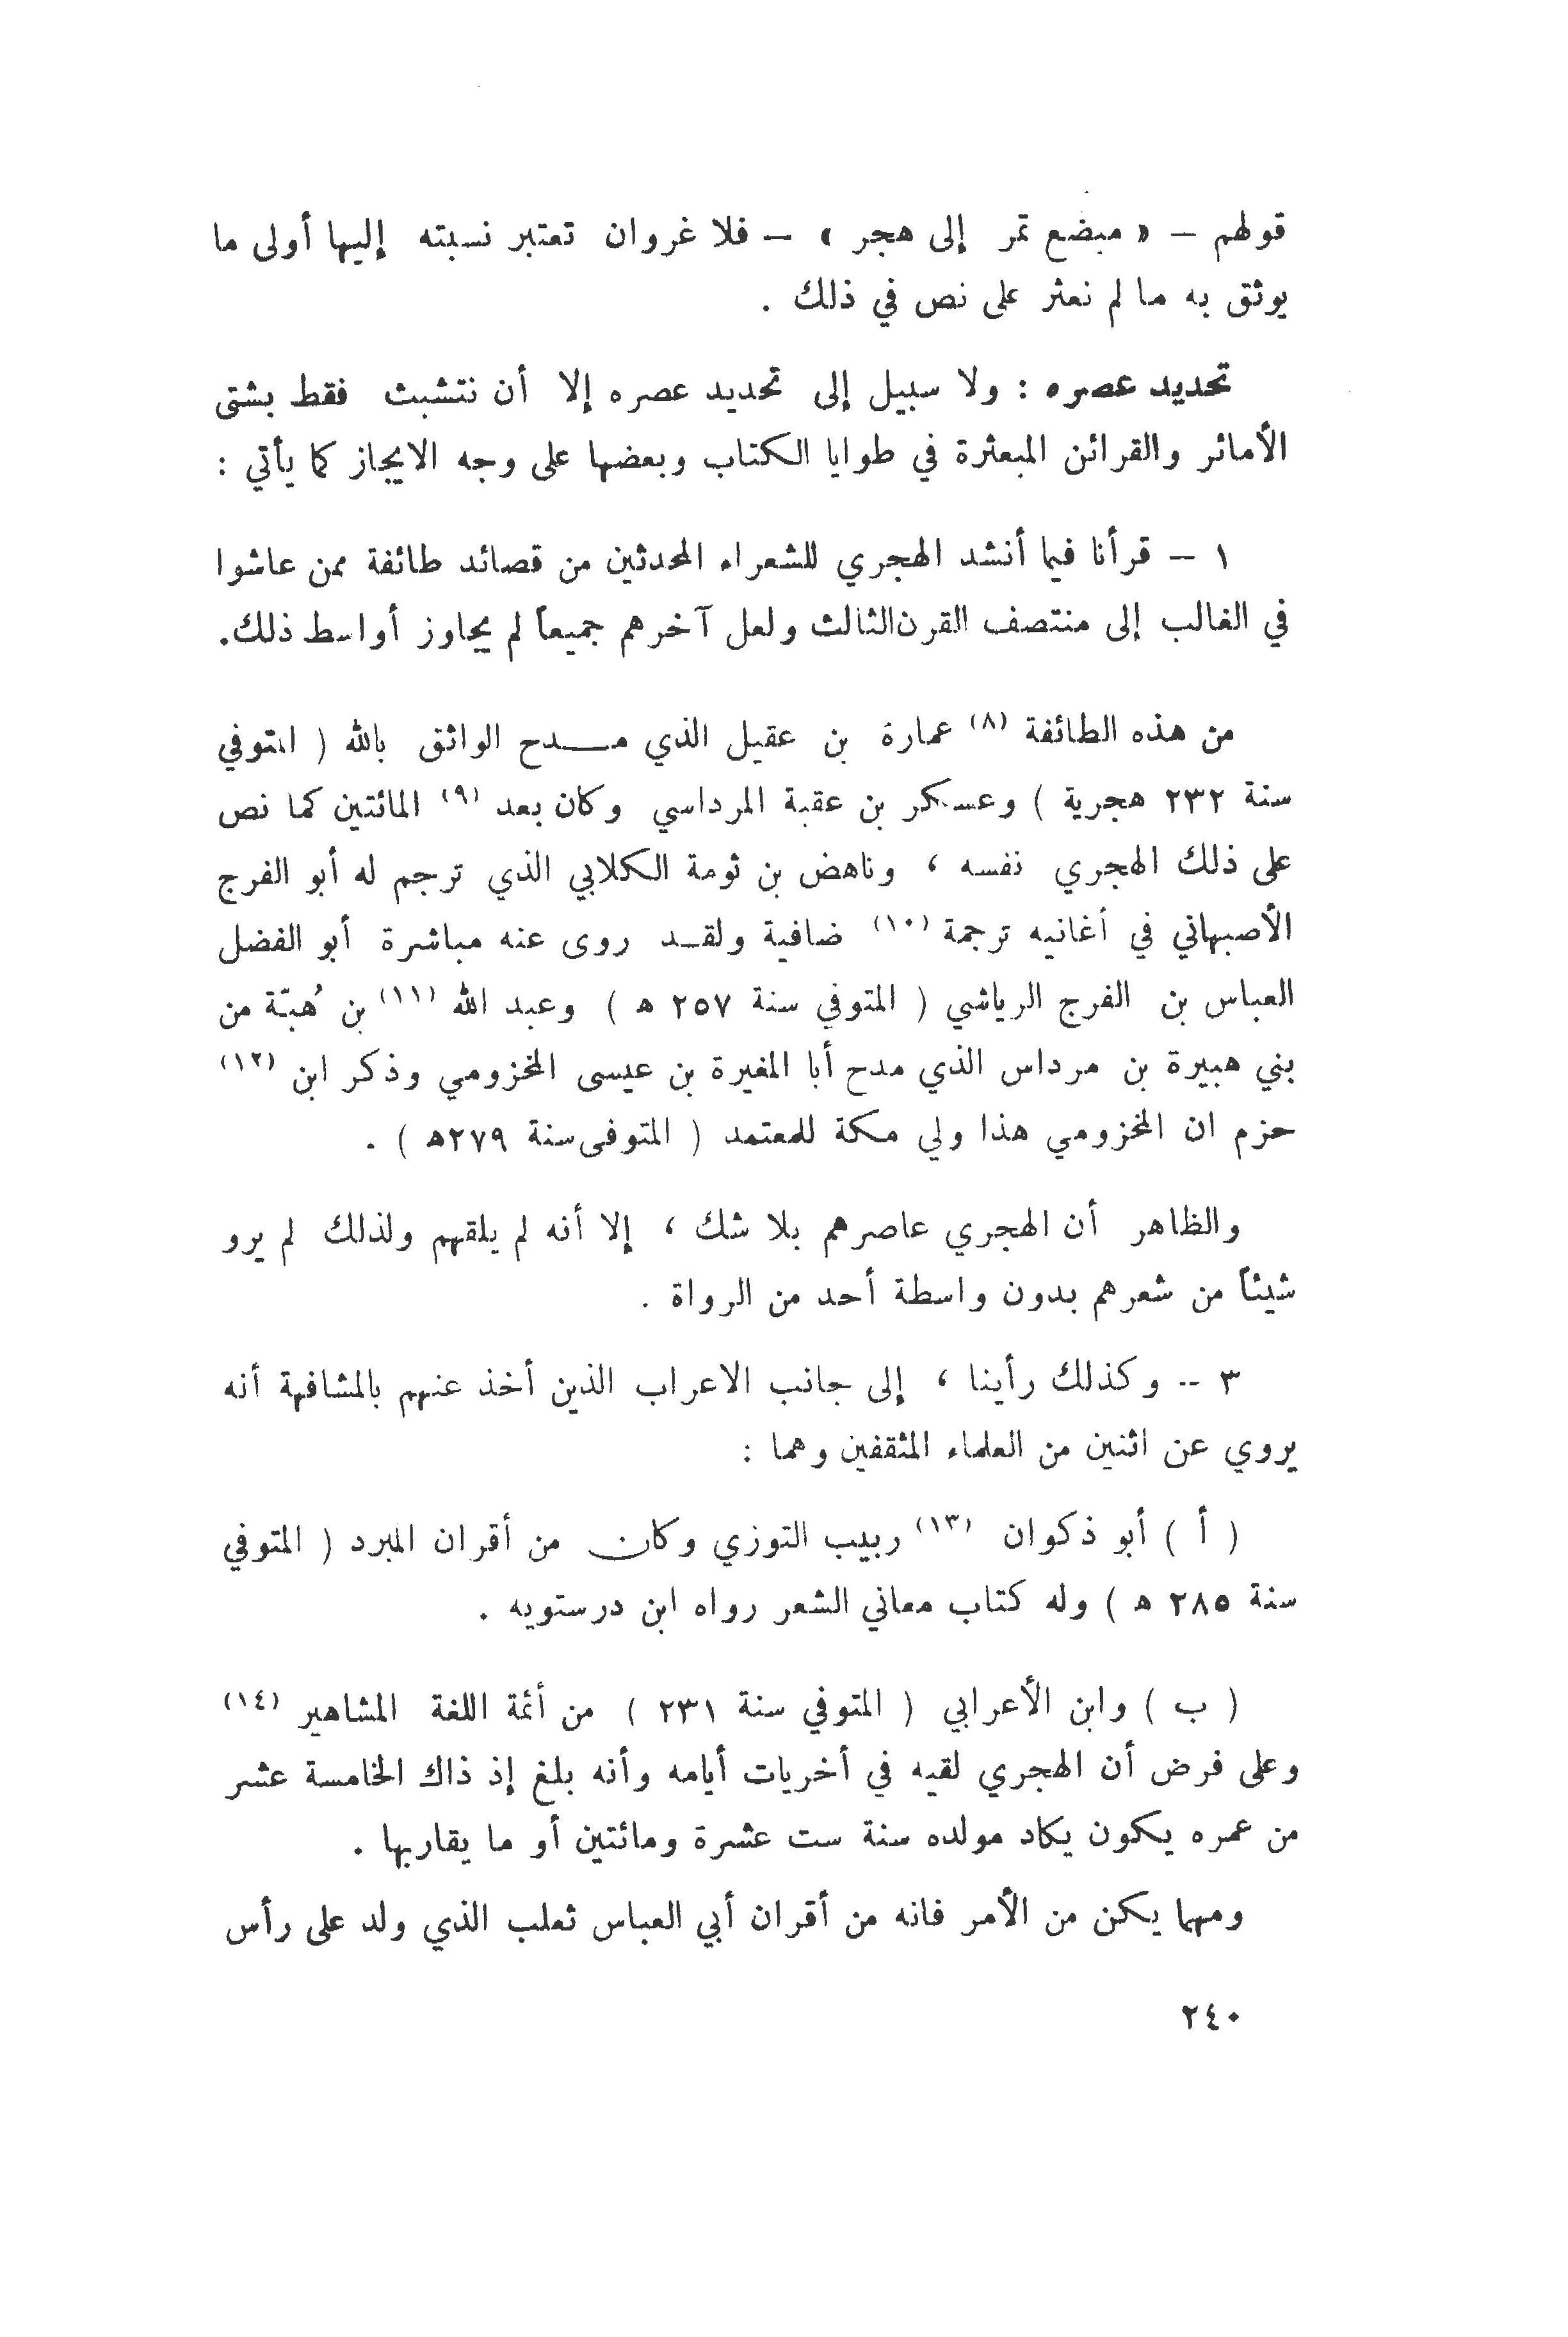 قولهم – « مبضع تمر إلى هجر » – فلا غروان تعتبر نسبته إليها أولى ما
يوثق به ما لم نعثر على نص في ذلك .
تحديد عصره : ولا سبيل إلى تحديد عصره إلا أن نتشبث فقط بشتى
الأمائر والقرائن المبعثرة في طوايا الكتاب وبعضها على وجه الايجاز كما يأتي :
١ – قرأنا فيما أنشد الهجري للشعراء المحدثين من قصائد طائفة ممن عاشوا
في الغالب إلى منتصف القرن الثالث ولعل آخرهم جميعاً لم يجاوز أواسط ذلك.
من هذه الطائفة (٨) عمارة بن عقيل الذي مـــدح الواثق بالله ( المتوفي
سنة ٢٣٢ هجرية ) وعسكر بن عقبة المرداسي وكان بعد (٩) المائتين كما نص
على ذلك الهجري نفسه ، وناهض بن ثومة الكلابي الذي ترجم له أبو الفرج
الأصبهاني في أغانيه ترجمة (١٠) ضافية ولقـد روى عنه مباشرة أبو الفضل
العباس بن الفرج الرياشي ( المتوفي سنة ٢٥٧ ه ) وعبد الله (١١) بن هُبّة من
بني هبيرة بن مرداس الذي مدح أبا المغيرة بن عيسى المخزومي وذكر ابن (١٢)
حزم ان المخزومي هذا ولي مكة للمعتمد ( المتوفى سنة ٢٧٩ه ) .
والظاهر أن الهجري عاصرهم بلا شك ، إلا أنه لم يلقهم ولذلك لم يرو
شيئاً من شعرهم بدون واسطة أحد من الرواة .
٣ -- وكذلك رأينا ، إلى جانب الاعراب الذين أخذ عنهم بالمشافهة أنه
يروي عن اثنين من العلماء المثقفين وهما :
( أ ) أبو ذكوان (١٣) ربيب التوزي وكان من أقران المبرد ( المتوفي
سنة ٢٨٥ ه ) وله كتاب معاني الشعر رواه ابن درستويه .
( ب ) وابن الأعرابي ( المتوفي سنة ٢٣١ ) من أئمة اللغة المشاهير (١٤)
وعلى فرض أن الهجري لقيه في أخريات أيامه وأنه بلغ إذ ذاك الخامسة عشر
من عمره يكون يكاد مولده سنة ست عشرة ومائتين أو ما يقاربها .
ومهما يكن من الأمر فانه من أقران أبي العباس ثعلب الذي ولد على رأس
٢٤٠